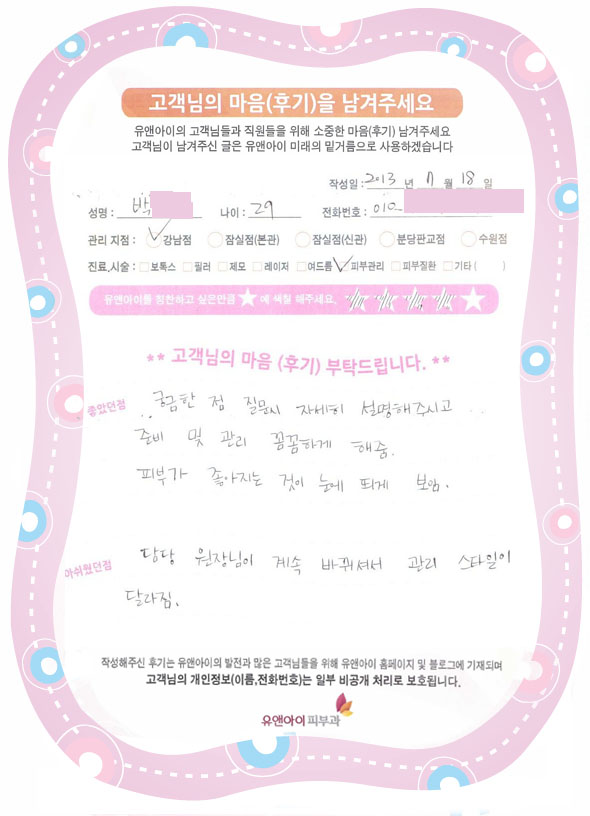 고객님의 마음(후기)을 남겨주세요
유앤아이의 고객님들과 직원들을 위해 소중한 마음(후기) 남겨주세요
고객님이 남겨주신 글은 유앤아이 미래의 밑거름으로 사용하겠습니다
작성일 : 2013 년 11 월 18 일
성명 : 박 나이 : 29 전화번호 : 010
관리 지점 : 강남점 잠실점(본관) 잠실점(신관) 분당판교점 수원점
진료,시술 : 보톡스 필러 제모 레이저 여드름 피부관리 피부질환 기타 ( )
유앤아이를 칭찬하고 싶은만큼 ★ 에 색칠 해주세요. ★ ★ ★ ★ ★
** 고객님의 마음 (후기) 부탁드립니다. **
좋았던점 궁금한 점 질문시 자세히 설명해주시고
준비 및 관리 꼼꼼하게 해줌.
피부가 좋아지는 것이 눈에 띄게 보임.
아쉬웠던점 담당 원장님이 계속 바뀌셔서 관리 스타일이
달라짐.
작성해주신 후기는 유앤아이의 발전과 많은 고객님들을 위해 유앤아이 홈페이지 및 블로그에 기재되며
고객님의 개인정보(이름,전화번호)는 일부 비공개 처리로 보호됩니다.
유앤아이피부과